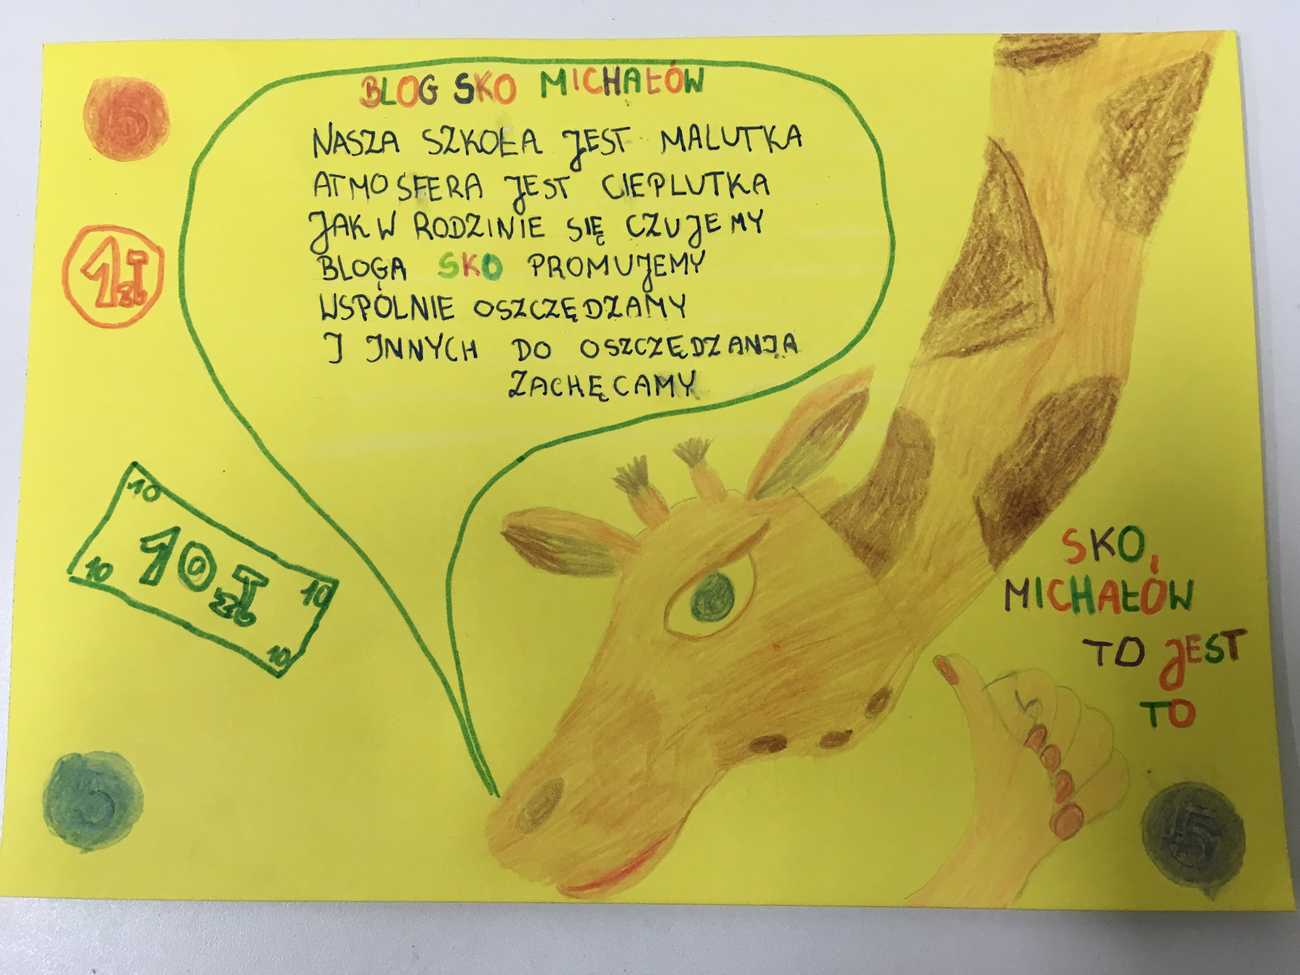 BLOG SKO MICHAŁÓW
NASZA SZKOŁA JEST MALUTKA
ATMOSFERA JEST CIEPLUTKA
JAK W RODZINIE SIĘ CZUJEMY
BLOGA SKO PROMUJEMY
WSPÓLNIE OSZCZĘDZAMY
I INNYCH DO OSZCZĘDZANIA
ZACHĘCAMY
1 zł
10
10 zł
10
10
10
SKO,
MICHAŁÓW
TO JEST
TO
5
5